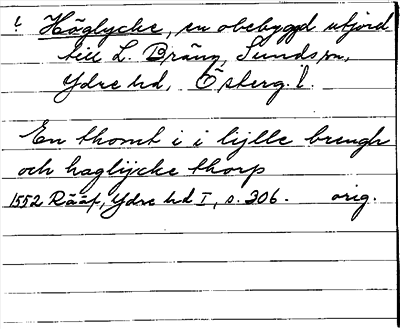 ! Häglycke, en obebyggd utjord
till L. Bräng, Sunds sn,
Ydre hd, Ösberg. l.
En thomt i i lijlle brengh
och haglijcke thorp
1552 Rääf, Ydre hd I, s. 306. orig.